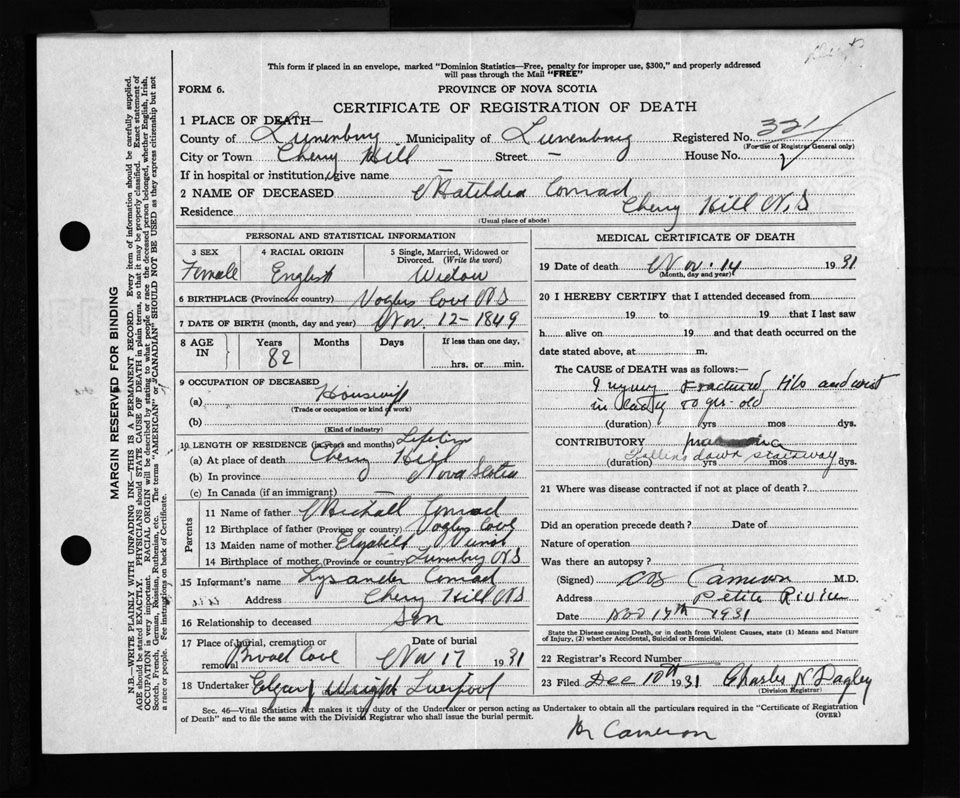 This form if placed in an envelope, marked "Dominion Statistics—Free, penalty for improper use, $300," and properly addressed
will pass through the Mail "FREE"
FORM 6.
PROVINCE OF NOVA SCOTIA
CERTIFICATE OF REGISTRATION OF DEATH
1 PLACE OF DEATH—
County of Lunenburg Municipality of Lunenburg Registered No. 321
(For use of Registrar General only)
City or Town Cherry Hill Street — House No.
If in hospital or institution, give name —
2 NAME OF DECEASED Matilda Conrad
Residence Cherry Hill N.S
(Usual place of abode)
PERSONAL AND STATISTICAL INFORMATION
3 SEX 4 RACIAL ORIGIN 5 Single, Married, Widowed or Divorced. (Write the word)
Female English Widow
6 BIRTHPLACE (Province or country) Voglers Cove N S
7 DATE OF BIRTH (month, day and year) Nov. 12-1849
8 AGE IN Years Months Days If less than one day,
82 hrs. or min.
9 OCCUPATION OF DECEASED
(a) Housewife
(Trade or occupation or kind of work)
(b)
(Kind of industry)
10 LENGTH OF RESIDENCE (in years and months) Lifetime
(a) At place of death Cherry Hill
(b) In province Nova Scotia
(c) In Canada (if an immigrant) —
Parents
11 Name of father Michall Conrad
12 Birthplace of father (Province or country) Voglers Cove
13 Maiden name of mother
14 Birthplace of mother (Province or country) Lunenburg N S
15 Informant's name Lysander Conrad
Address Cherry Hill NS
16 Relationship to deceased Son
17 Place of burial, cremation or removal Cove
Date of burial Nov 17 1931
18 Undertaker Wright Liverpool
MEDICAL CERTIFICATE OF DEATH
19 Date of death Nov. 14 1931
(Month, day and year)
20 I HEREBY CERTIFY that I attended deceased from
19 to 19 that I last saw
h alive on 19 and that death occurred on the
date stated above, at m.
The CAUSE of DEATH was as follows:—
Injury Fractured and wrist
in lady 80 yrs-old
(duration) yrs mos dys.
CONTRIBUTORY
Falling down stairway
(duration) yrs mos dys.
21 Where was disease contracted if not at place of death?
Did an operation precede death? Date of
Nature of operation
Was there an autopsy?
(Signed) Cameron M.D.
Address Petite Riviere
Date Nov 17th 1931
State the Disease causing Death, or in death from Violent Causes, state (1) Means and Nature of Injury, (2) whether Accidental, Suicidal or Homicidal.
22 Registrar's Record Number
23 Filed Dec 10th 1931 Charles N Dagley
(Division Registrar)
Sec. 46—Vital Statistics Act makes it the duty of the Undertaker or person acting as Undertaker to obtain all the particulars required in the "Certificate of Registration
of Death" and to file the same with the Division Registrar who shall issue the burial permit.
(OVER)
Cameron
MARGIN RESERVED FOR BINDING
N.B.—WRITE PLAINLY WITH UNFADING INK—THIS IS A PERMANENT RECORD. Every item of information should be carefully supplied.
AGE should be stated EXACTLY. PHYSICIANS should STATE CAUSE OF DEATH in plain terms, so that it may be properly classified. Exact statement of
OCCUPATION is very important. RACIAL ORIGIN will be described by stating to what people or race the deceased person belonged, whether English, Irish,
Scotch, French, German, Russian, Ruthenian, etc. The terms "AMERICAN" or "CANADIAN" SHOULD NOT BE USED as they express citizenship but not
a race or people. Fee instructions on back of Certificate.